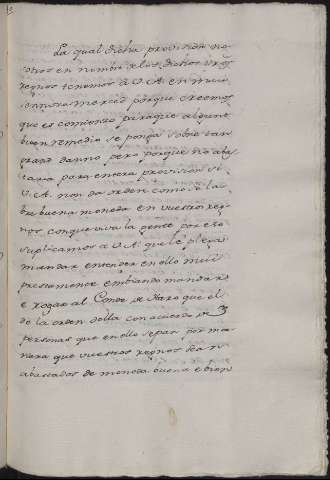 La qual dicha provision no
sotros en nombre de los dichos vros
regnos tenemos a V.A. en mui
sennora merced porque creemos
que es comienzo para que algunt
buen remedio se ponga sobre tan
grand danno pero porque no abas
tara para entera provision si
V.A. non da orden como se la
bre buena moneda en vuestros reg
nos con que viva la gente por eso
suplicamos a V.A. que le plega
mandar entender en ello mui
prestamente embiando mandar
e rogar al Conde de Haro que él
de la orden della con acuerdo de
personas que en ello sepan por ma
nera que vuestros regnos sean
abastados de moneda buena e bien